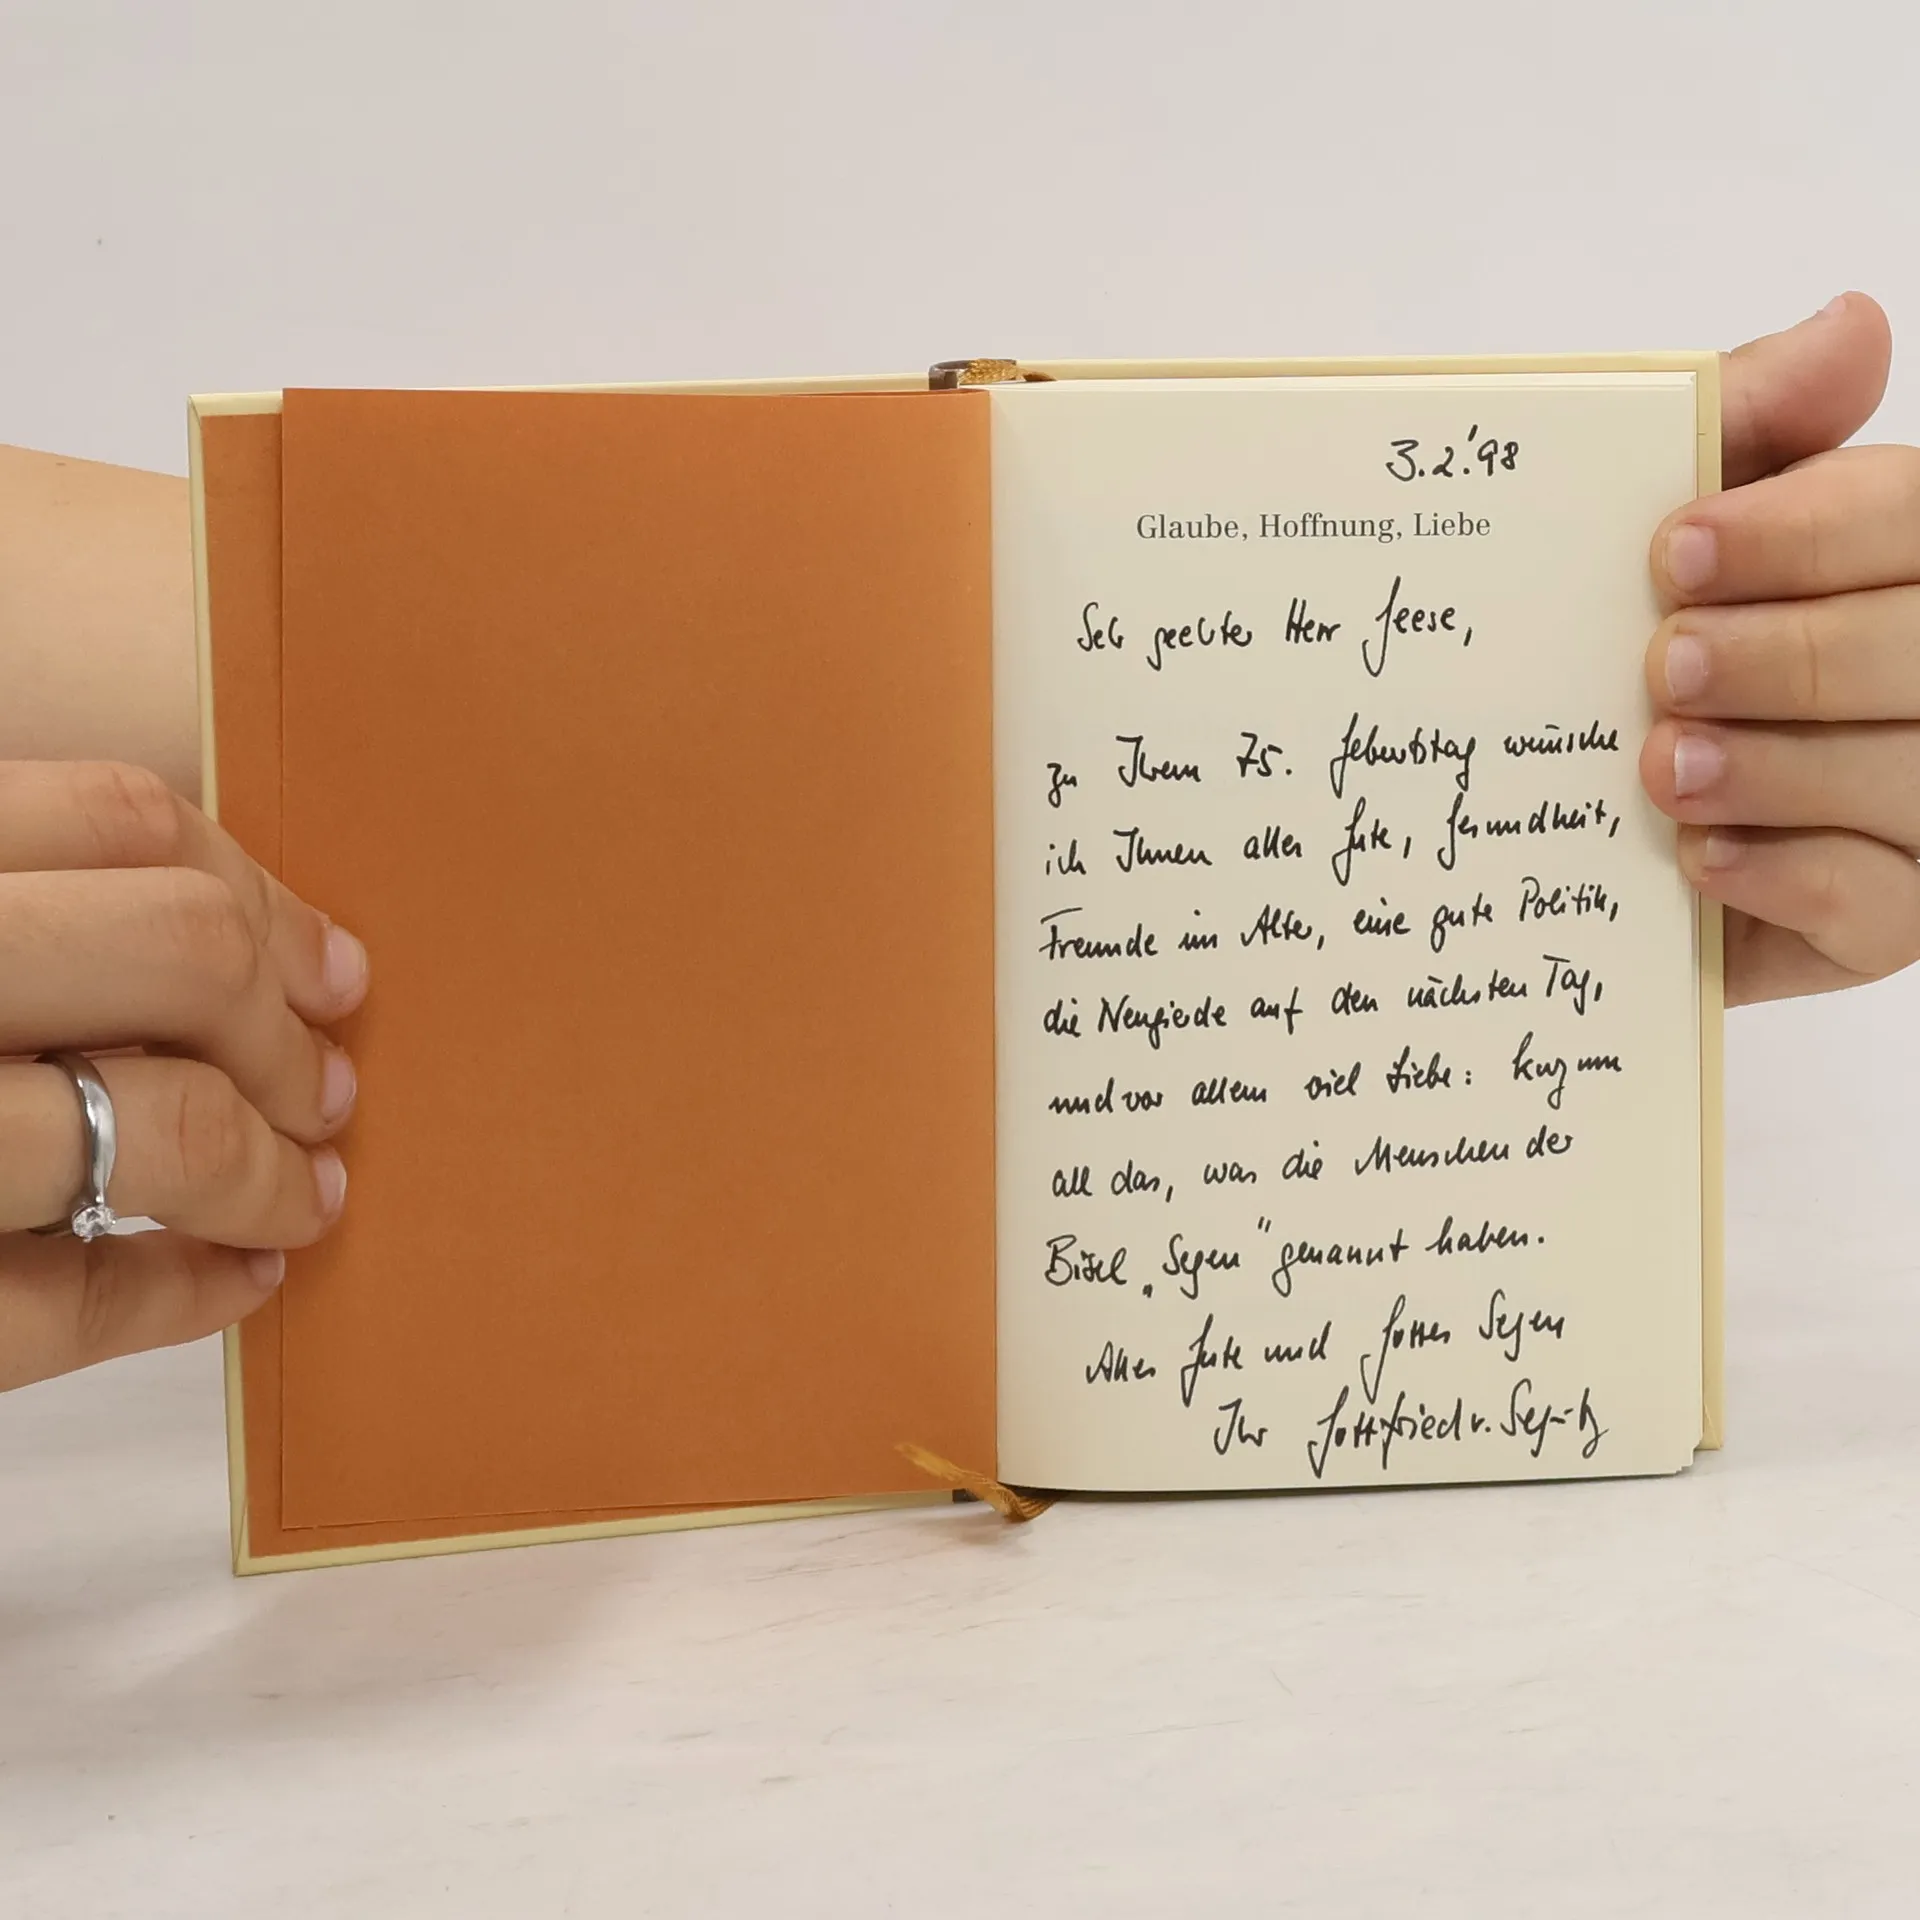 3.2.'98
Glaube, Hoffnung, Liebe
Sehr geehrter Herr Geese,
zu Ihrem 75. Geburtstag wünsche
ich Ihnen alles Gute, Gesundheit,
Freunde im Alter, eine gute Politik,
die Neugierde auf den nächsten Tag,
und vor allem viel Liebe: kurzum
all das, was die Menschen der
Bibel „Segen" genannt haben.
Alles Gute und Gottes Segen
Ihr Gottfried v. Segnitz